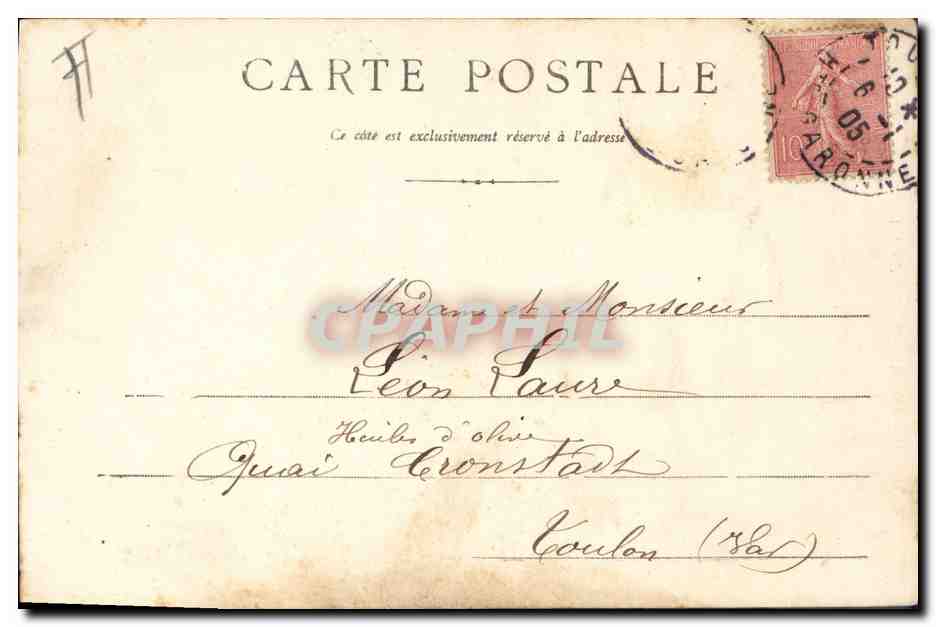 CARTE POSTALE
Ce côté est exclusivement réservé à l'adresse
10
6
05
GARONNE
Madame et Monsieur
CPAPHIL
Léon Laure
Huiles d'olive
Quai Cronstadt
Toulon (Var)